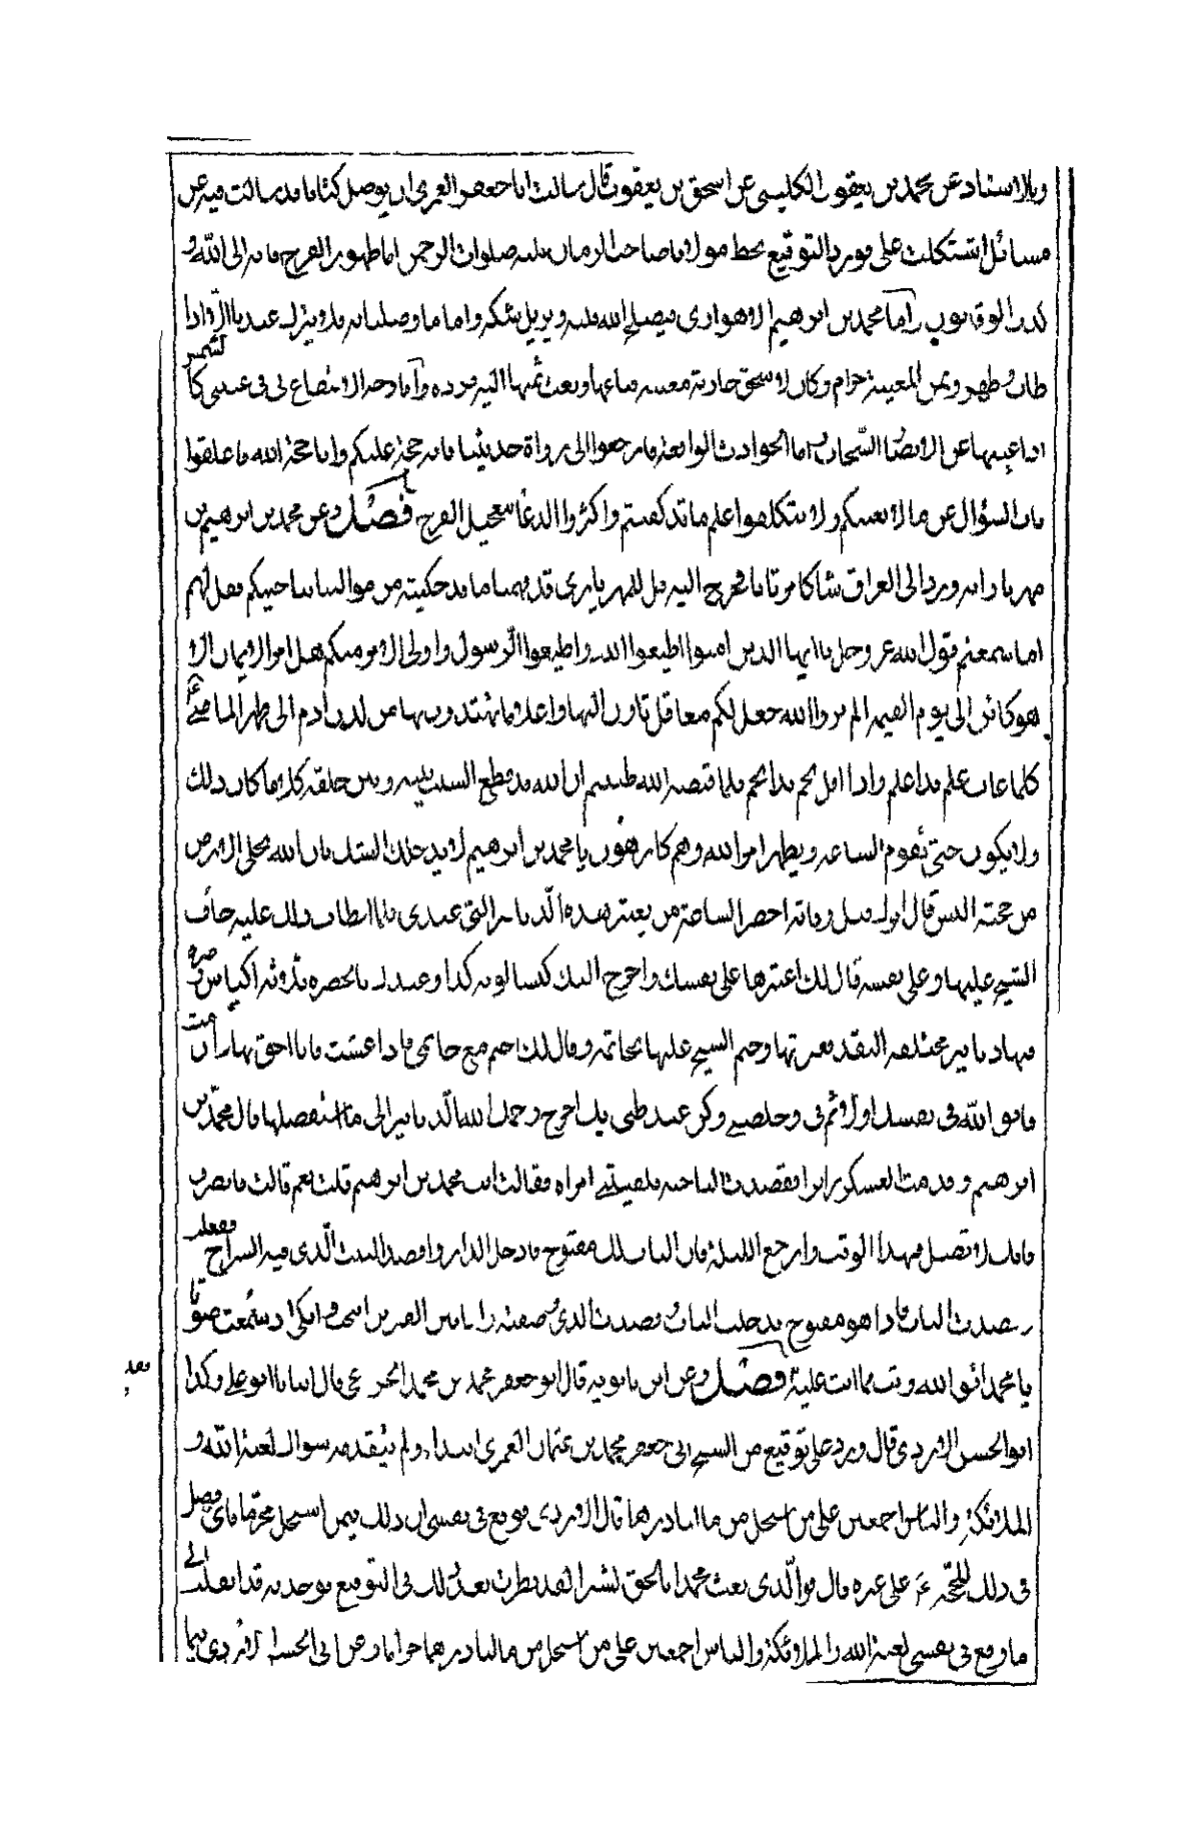 وبالاسناد عن محمد بن يعقوب الكليني عن اسحق بن يعقوب قال سالت ابا جعفر العمري ان يوصل كتابا قد سالت فيه عن
مسائل اشكلت على فورد التوقيع بخط مولانا صاحب الزمان عليه صلوات الرحمن اما ظهور الفرج فانه الى الله و
كذب الوقاتون واما محمد بن ابرهيم الاهوازى فيصلح الله قلبه ويزيل شكه واما ما وصلنا به فلا يقبل عندنا الا اذا
طاب وطهر وثمن المغنية حرام وكان لاسحق جارية مغنية فباعها وبعث ثمنها اليه فرده واما وجه الانتفاع بى فى غيبتى كالشمس
اذا غيبها عن الابصار السحاب واما الحوادث الواقعة فارجعوا الى رواة حديثنا فانه حجة عليكم وانا حجة الله فاغلقوا
باب السؤال عن ما لا يعنيكم ولا تتكلفوا علم ما قد كفيتم واكثروا الدعا بتعجيل الفرج فصل وعن محمد بن ابرهيم بن
مهزيار انه ورد الى العراق شاكا مرتابا فخرج اليه قل للمهزيارى قد فهمنا ما قد حكيته من موالينا بناحيتكم فقل لهم
اما سمعتم قول الله عز وجل يا ايها الذين امنوا اطيعوا الله واطيعوا الرسول واولى الامر منكم هل امر الا بما
هو كائن الى يوم القيمه الم تروا الله جعل لكم معاقل تاوون اليها واعلاما تهتدون بها من لدن ادم الى ظهر الماضى ع
كلما غاب علم بدا علم واذا افل نجم بدا نجم فلما قبضه الله ظننتم ان الله قد قطع السبب بينه وبين خلقه كلا ما كان ذلك
ولا يكون حتى تقوم الساعه ويظهر امر الله وهم كارهون يا محمد بن ابرهيم لا يدخلك الشك فان الله لا يخلى الارض
من حجته اليس قال ابوك قبل وفاته احضر الساعة من يعير هذه الدنانير التى عندى فلما ابطا ذلك عليه خاف
الشيخ عليها وعلى نفسه قال لك اعتبرها على نفسك واخرج اليك كيسا لونه كذا وعندك بالحضره ثلاثه اكياس وصره
فيها دنانير مختلفه النقد فعيرتها وختم الشيخ عليها بخاتمه وقال لك اختم مع خاتمى فاذا عشت فانا احق بها وان مت
فاتق الله فى نفسك اولا ثم فى وخلصنى وكن عند ظنى بك اخرج رحمك الله الدنانير الى ما استفضلها قال محمد بن
ابرهيم وقدمت العسكر زايرا فقصدت الناحيه فلقيتنى امراه فقالت انت محمد بن ابرهيم قلت نعم قالت فانصرف
فانك لا تصل فى هذا الوقت وارجع الليلة فان الباب لك مفتوح فادخل الدار واقصد البيت الذى فيه السراج ففعلت
وقصدت الباب فاذا هو مفتوح فدخلت الباب وقصدت الذى وصفته
يا محمد اتق الله وتب مما انت عليه فصل وعن ابن بابويه قال ابو جعفر محمد بن محمد الخزاعى قال انبانا ابو على وكذا
ابو الحسن الازدى قال ورد على توقيع من الشيخ ابى جعفر محمد بن عثمان العمرى ابتداء ولم يتقدمه سوال لعنة الله و
الملائكة والناس اجمعين على من استحل من مالنا درهما قال الازدى فوقع فى نفسى ان ذلك فيمن استحل محرما فاى فضل
فى ذلك للحجة ع على غيره قال فوالذى بعث محمدا بالحق بشيرا لقد نظرت بعد ذلك فى التوقيع فوجدته قد انقلب الى
ما وقع فى نفسى لعنة الله والملائكة والناس اجمعين على من استحل من مالنا درهما حراما وعن ابى الحسن الازدى فيما